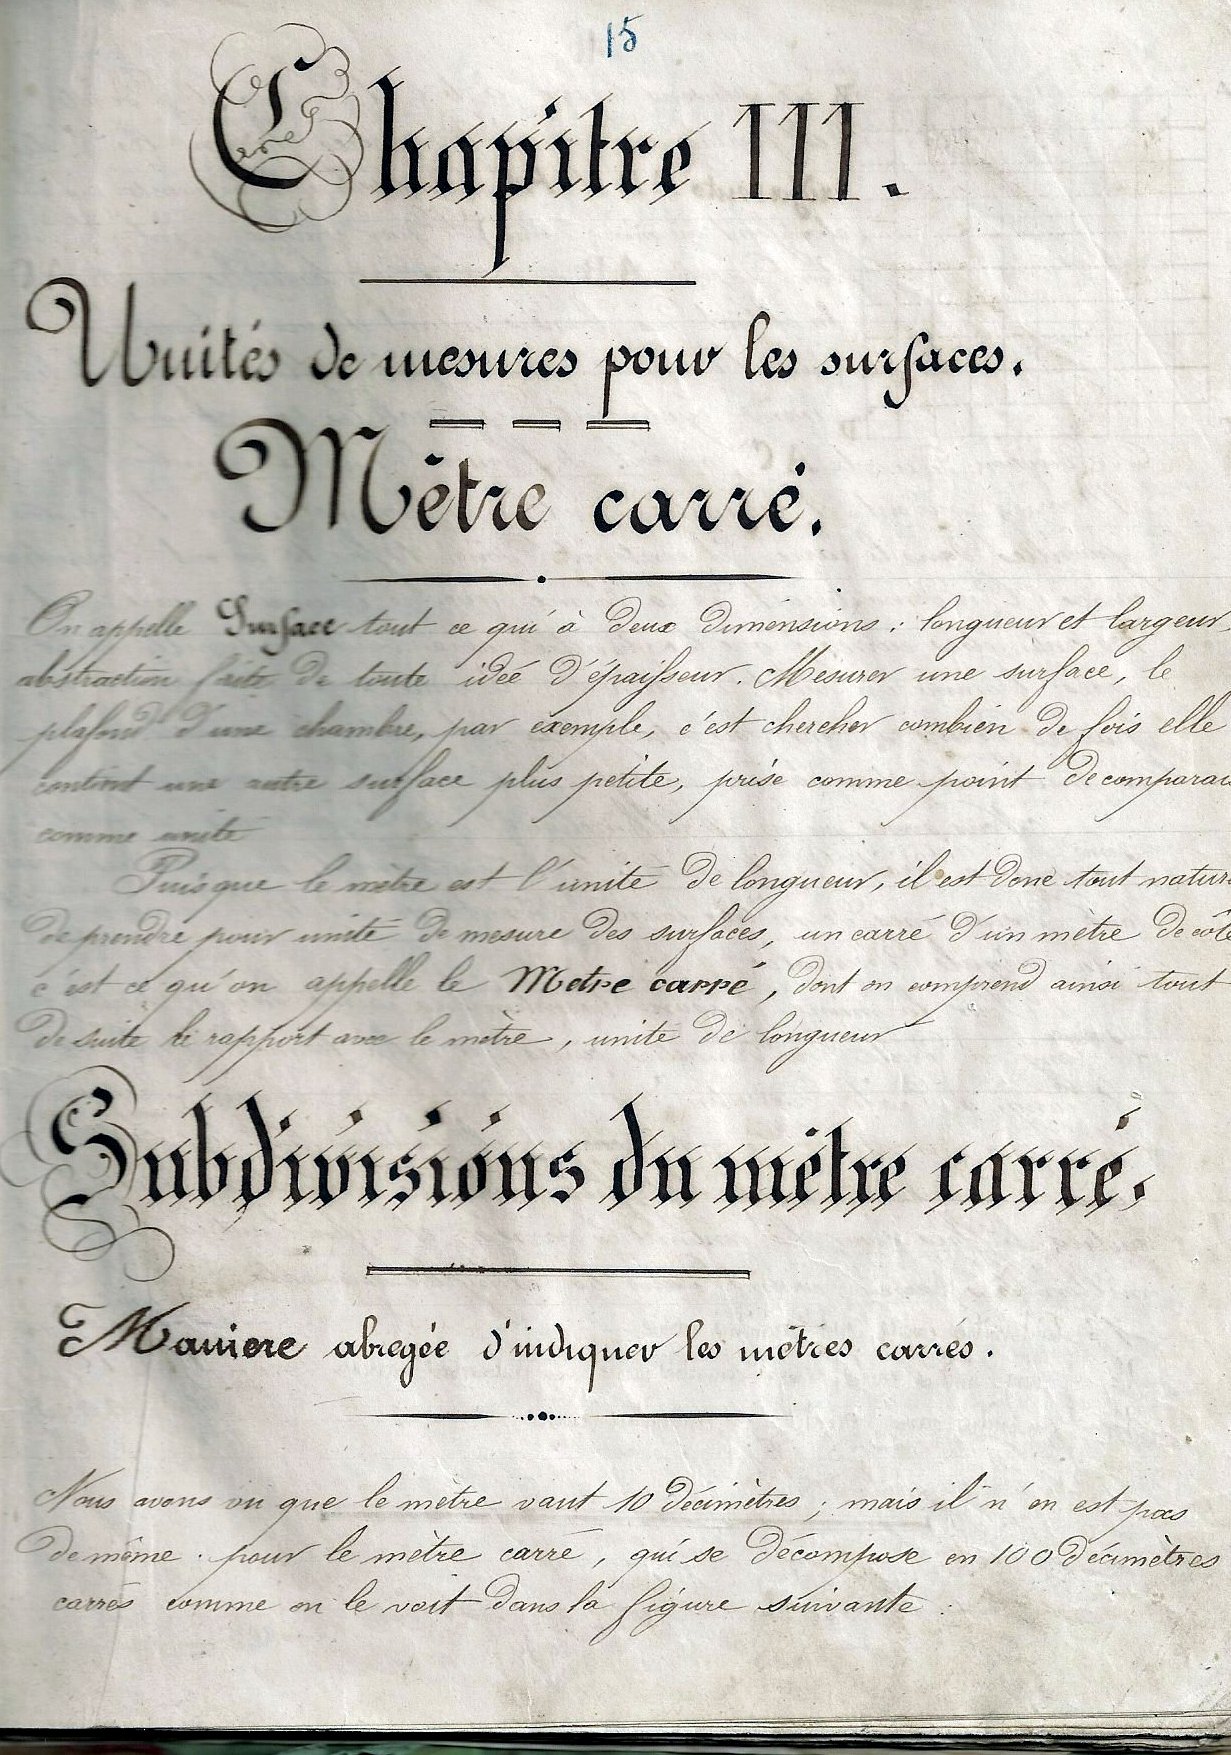 15
Chapitre III.
Unités de mesures pour les surfaces.
Mètre carré.
On appelle Surface tout ce qui à deux dimensions : longueur et largeur,
abstraction faite de toute idée d'épaisseur. Mesurer une surface, le
plafond d'une chambre, par exemple, c'est chercher combien de fois elle
contient une autre surface plus petite, prise comme point de comparais
comme unité
Puisque le mètre est l'unité de longueur, il est donc tout natur
de prendre pour unité de mesure des surfaces, un carré d'un mètre de côté
c'est ce qu'on appelle le Metre carré, dont on comprend ainsi tout
de suite le rapport avec le mètre, unité de longueur
Subdivisions du mètre carré.
Maniere abregée d'indiquer les mètres carrés.
Nous avons vu que le mètre vaut 10 décimètres ; mais il n'en est pas
de même pour le mètre carré, qui se décompose en 100 décimètres
carrés comme on le voit dans la figure suivante :